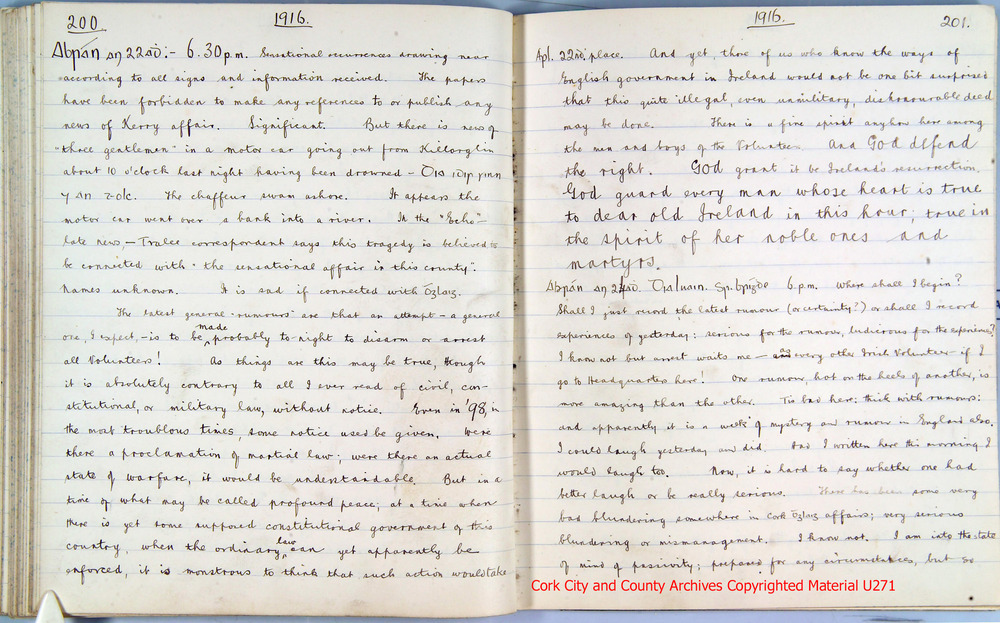 200
1916.
Abrán an 22ad:- 6.30 p.m. Sensational occurrences drawing near
according to all signs and information received. The papers
have been forbidden to make any references to or publish any
news of Kerry affair. Significant. But there is news of
"three gentlemen" in a motor car going out from Killorglin
about 10 o'clock last night having been drowned -
The chauffeur swam ashore. It appears the
motor car went over a bank into a river. In the "Echo" -
late news, - Tralee correspondent says this tragedy is believed to
be connected with "the sensational affair in this county".
Names unknown. It is sad if connected with
The latest general rumours are that an attempt - a general
one, I expect, - is to be made probably to-night to disarm or arrest
all Volunteers! As things are this may be true, though
it is absolutely contrary to all I ever read of civil, con-
stitutional, or military law, without notice. Even in '98, in
the most troublous times, some notice used be given. Were
there a proclamation of martial law; were there an actual
state of warfare, it would be understandable. But in a
time of what may be called profound peace; at a time when
there is yet some supposed constitutional government of this
country, when the ordinary law can yet apparently be
enforced, it is monstrous to think that such action would take
1916.
201.
Apl. 22ad. place. And yet, those of us who know the ways of
English government in Ireland would not be one bit surprised
that this quite illegal, even unmilitary, dishonourable deed
may be done. There is a fine spirit anyhow here among
the men and boys of the Volunteers. And God defend
the right. God grant it be Ireland's resurrection.
God guard every man whose heart is true
to dear old Ireland in this hour; true in
the spirit of her noble ones and
martyrs.
Abrán an 24ad. Dia Luain. 6 p.m. Where shall I begin?
Shall I just record the latest rumour (or certainty?) or shall I record
experiences of yesterday: serious for the rumour, ludicrous for the experience?
I know not but arrest waits me - as every other Irish Volunteer - if I
go to Headquarters here! One rumour, hot on the heels of another, is
more amazing than the other. Tis bad here; thick with rumours;
and apparently it is a week of mystery and rumour in England also.
I could laugh yesterday and did. Had I written here this morning I
would laugh too. Now, it is hard to say whether one had
better laugh or be really serious. There has been some very
bad blundering somewhere in Cork affairs; very serious
blundering or mismanagement. I know not. I am into the state
of mind of passivity; prepared for any circumstances, but so
Cork City and County Archives Copyrighted Material U271